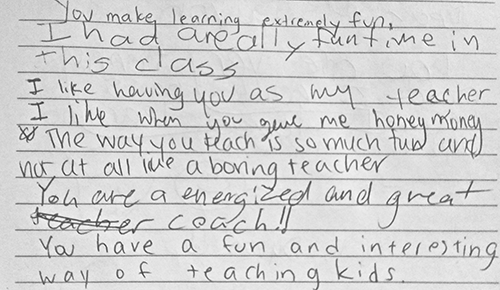 You make learning extremely fun.
I had areally fun time in
this class
I like having you as my teacher
I like when you gave me honey money
The way you teach is so much fun and
not at all like a boring teacher
You are a energized and great
teacher coach!!
You have a fun and interesting
way of teaching kids.